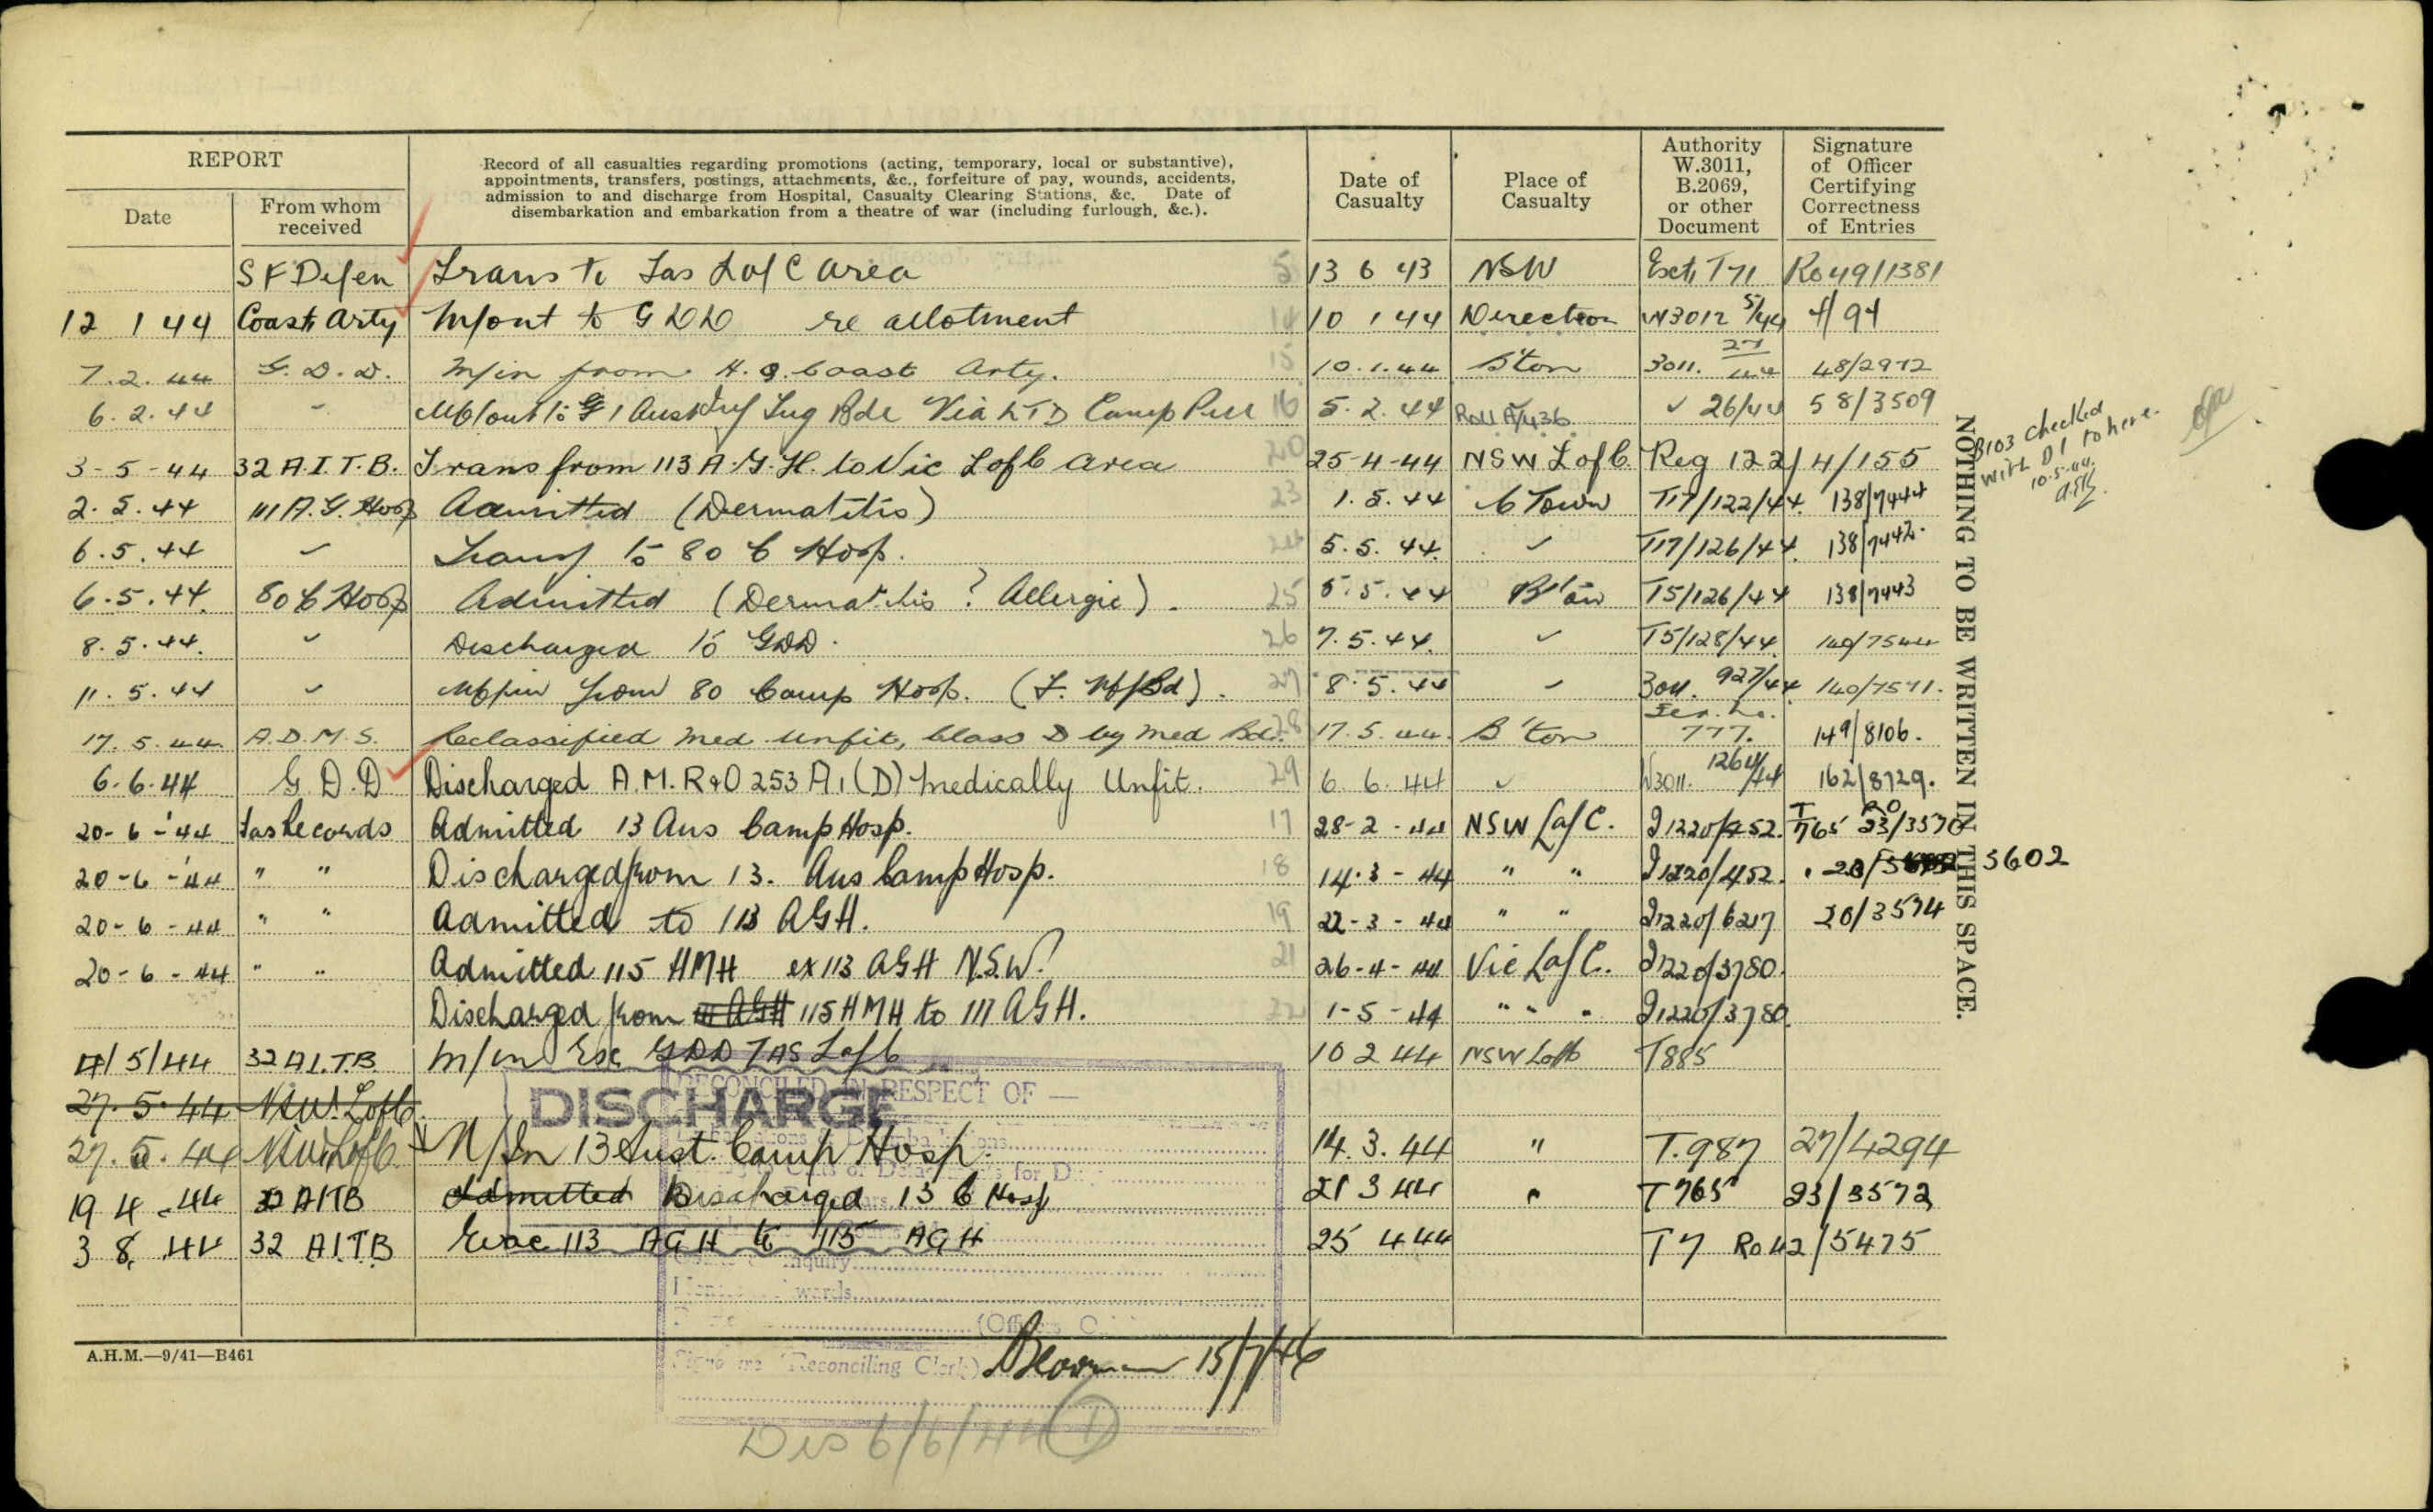 REPORT
Date
From whom received
Record of all casualties regarding promotions (acting, temporary, local or substantive),
appointments, transfers, postings, attachments, &c., forfeiture of pay, wounds, accidents,
admission to and discharge from Hospital, Casualty Clearing Stations, &c. Date of
disembarkation and embarkation from a theatre of war (including furlough, &c.).
Date of Casualty
Place of Casualty
Authority W.3011, B.2069, or other Document
Signature of Officer Certifying Correctness of Entries
S F Defen Trans to Tas L of C area 5 13 6 43 NSW T71 Ro 49/1381
12 1 44 Coast Arty M/out to G D D re allotment 14 10 1 44 Direction W3012 5/44 4/94
7.2.44 G.D.D. M/in from H.Q. Coast Arty. 15 10.1.44 B'ton 3011. 27/44 48/2972
6.2.44 M/out to 1 Aust Trg Bde Via LTD Camp 16 5.2.44 Roll A/436 26/44 58/3509
3-5-44 32 A.I.T.B. Trans from 113 A.G.H. to Vic L of C area 20 25-4-44 NSW L of C. Reg 122/4/155
2.5.44 111 A.G. Hosp Admitted (Dermatitis) 23 1.5.44 C Town T17/122/44. 138/7444
6.5.44 Transf to 80 C Hosp. 24 5.5.44. T17/126/44. 138/7442.
6.5.44. 80 C Hosp Admitted (Dermatitis ? Allergic). 25 5.5.44 B'ton T5/126/44 138/7443
8.5.44. Discharged to GDD. 26 7.5.44. T5/128/44. 140/7544
11.5.44 M/in from 80 Camp Hosp. 27 8.5.44 3011. 927/44 140/7571.
17.5.44. A.D.M.S. Reclassified Med Unfit, Class D by Med Bd. 28 17.5.44. B'ton Ser. No. 777. 149/8106.
6.6.44 G.D.D Discharged A.M.R&O 253 A.1(D) medically Unfit. 29 6.6.44 W3011. 1264/44 162/8729.
20-6-44 Tas Records Admitted 13 Aus Camp Hosp. 17 28-2-44 NSW L of C. J1220/452. T765 RO 23/3570
20-6-44 " " Discharged from 13. Aus Camp Hosp. 18 14.3-44 " " J1220/452. 5602
20-6-44 " " Admitted to 113 AGH. 19 22-3-44 " " J1220/6217 20/3574
20-6-44 " " Admitted 115 HMH ex 113 AGH N.S.W. 21 26-4-44 Vic L of C. J1220/3780.
Discharged from 111 AGH 115 HMH to 111 AGH. 22 1-5-44 " " " J1220/3780.
4/5/44 32 A.I.T.B M/in Exc GDD TAS L of C 10 2 44 NSW L of C T885
27.5.44 NSW. L of C.
27.5.44 NSW L of C. M/In 13 Aust. Camp Hosp. 14.3.44 " T.987 27/4294
19 4.44 32 AITB Admitted Discharged 13 C Hosp 21 3 44 " T765 23/3572
3 8.44 32 A.I.T.B Evac 113 AGH to 115 AGH 25 4 44 T7 Ro 42/5475
DISCHARGE
RECONCILED IN RESPECT OF —
Signature (Reconciling Clerk)
15/7/46
A.H.M.—9/41—B461
Dis 6/6/44 1
NOTHING TO BE WRITTEN IN THIS SPACE.
B103 checked
with D1 to here.
10.5.44.